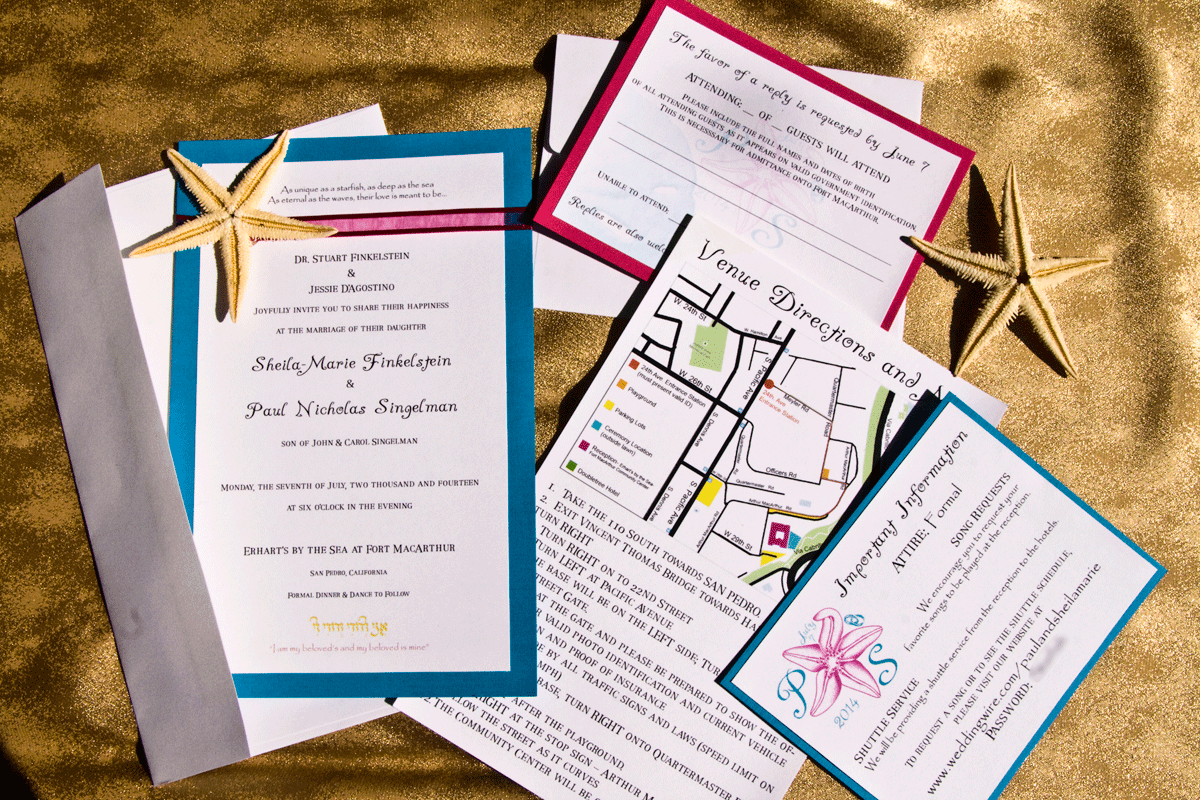 As unique as a starfish, as deep as the sea
As eternal as the waves, their love is meant to be...
Dr. Stuart Finkelstein
&
Jessie D'Agostino
Joyfully invite you to share their happiness
at the marriage of their daughter
Sheila-Marie Finkelstein
&
Paul Nicholas Singelman
son of John & Carol Singelman
Monday, the seventh of July, two thousand and fourteen
at six o'clock in the evening
Erhart's by the Sea at Fort MacArthur
San Pedro, California
Formal Dinner & Dance to Follow
אני לדודי ודודי לי
"I am my beloved's and my beloved is mine"
The favor of a reply is requested by June 7
Attending: _ of _ guests will attend
Please include the full names and dates of birth
of all attending guests as it appears on valid government identification.
This is necesssary for admittance onto Fort MacArthur.
Unable to attend: _
Replies are also
Venue Directions and
W 24th St
W 26th St
S Pacific Ave
24th Ave. Entrance Station
(must present valid ID)
Playground
Parking Lots
Ceremony Location
(outside lawn)
Reception- Erhart's by the Sea
Fort MacArthur Community Center
Doubletree Hotel
24th. Ave
Entrance Station
Meyler Rd
Quartermaster Road
Officers Rd
Quartermaster Rd
Arthur MacArthur Rd
S Denna Ave
S Pacific Ave
W 29th St
Via Cabri
1. Take the 110 South towards San Pedro,
2. Exit Vincent Thomas Bridge towards Ha
turn RIGHT
turn RIGHT on to 22nd Street
turn LEFT at Pacific Avenue
the base will be on the LEFT side; tur
Street Gate.
at the gate and please be prepared to show the of-
valid photo identification and current vehicle
and proof of insurance
e by all traffic signs and laws (speed limit on
mph)
base, turn RIGHT onto Quartermaster
after the playground
RIGHT at the stop sign _ Arthur M
low the street as it curves
The Community Center will be
Important Information
Attire: Formal
Song Requests
We encourage you to request your
favorite songs to be played at the reception.
Shuttle Service
We will be providing a shuttle service from the reception to the hotels.
To request a song or to see the shuttle schedule,
please visit our website at
www.weddingwire.com/paulandsheilamarie
Password:
July
P
S
2014